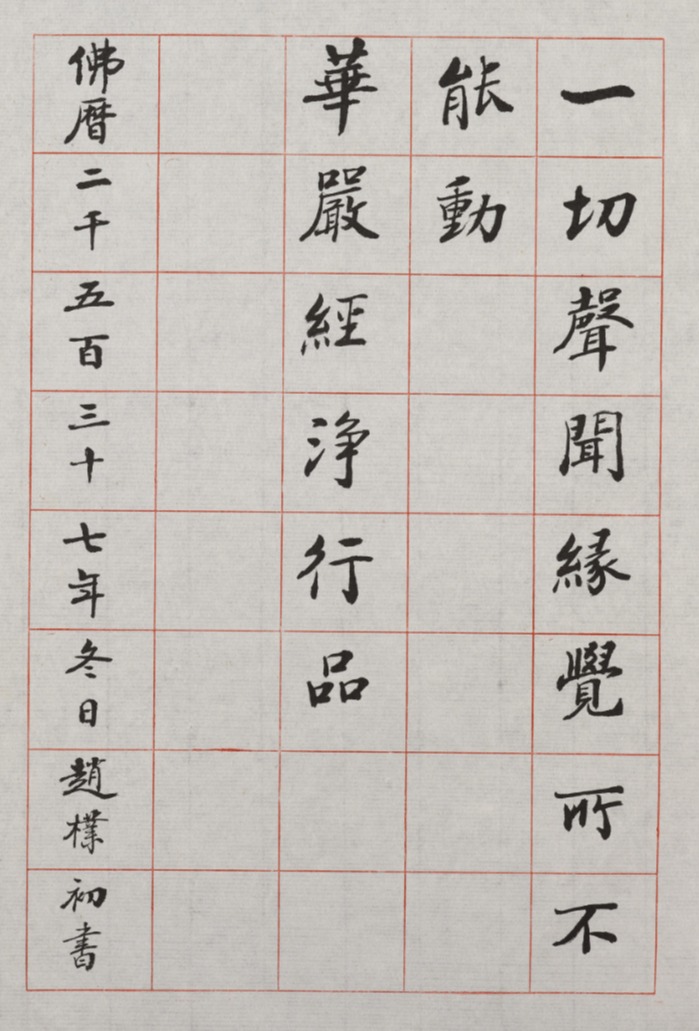 一切聲聞緣覺所不
能動
華嚴經淨行品
佛曆二千五百三十七年冬日趙樸初書